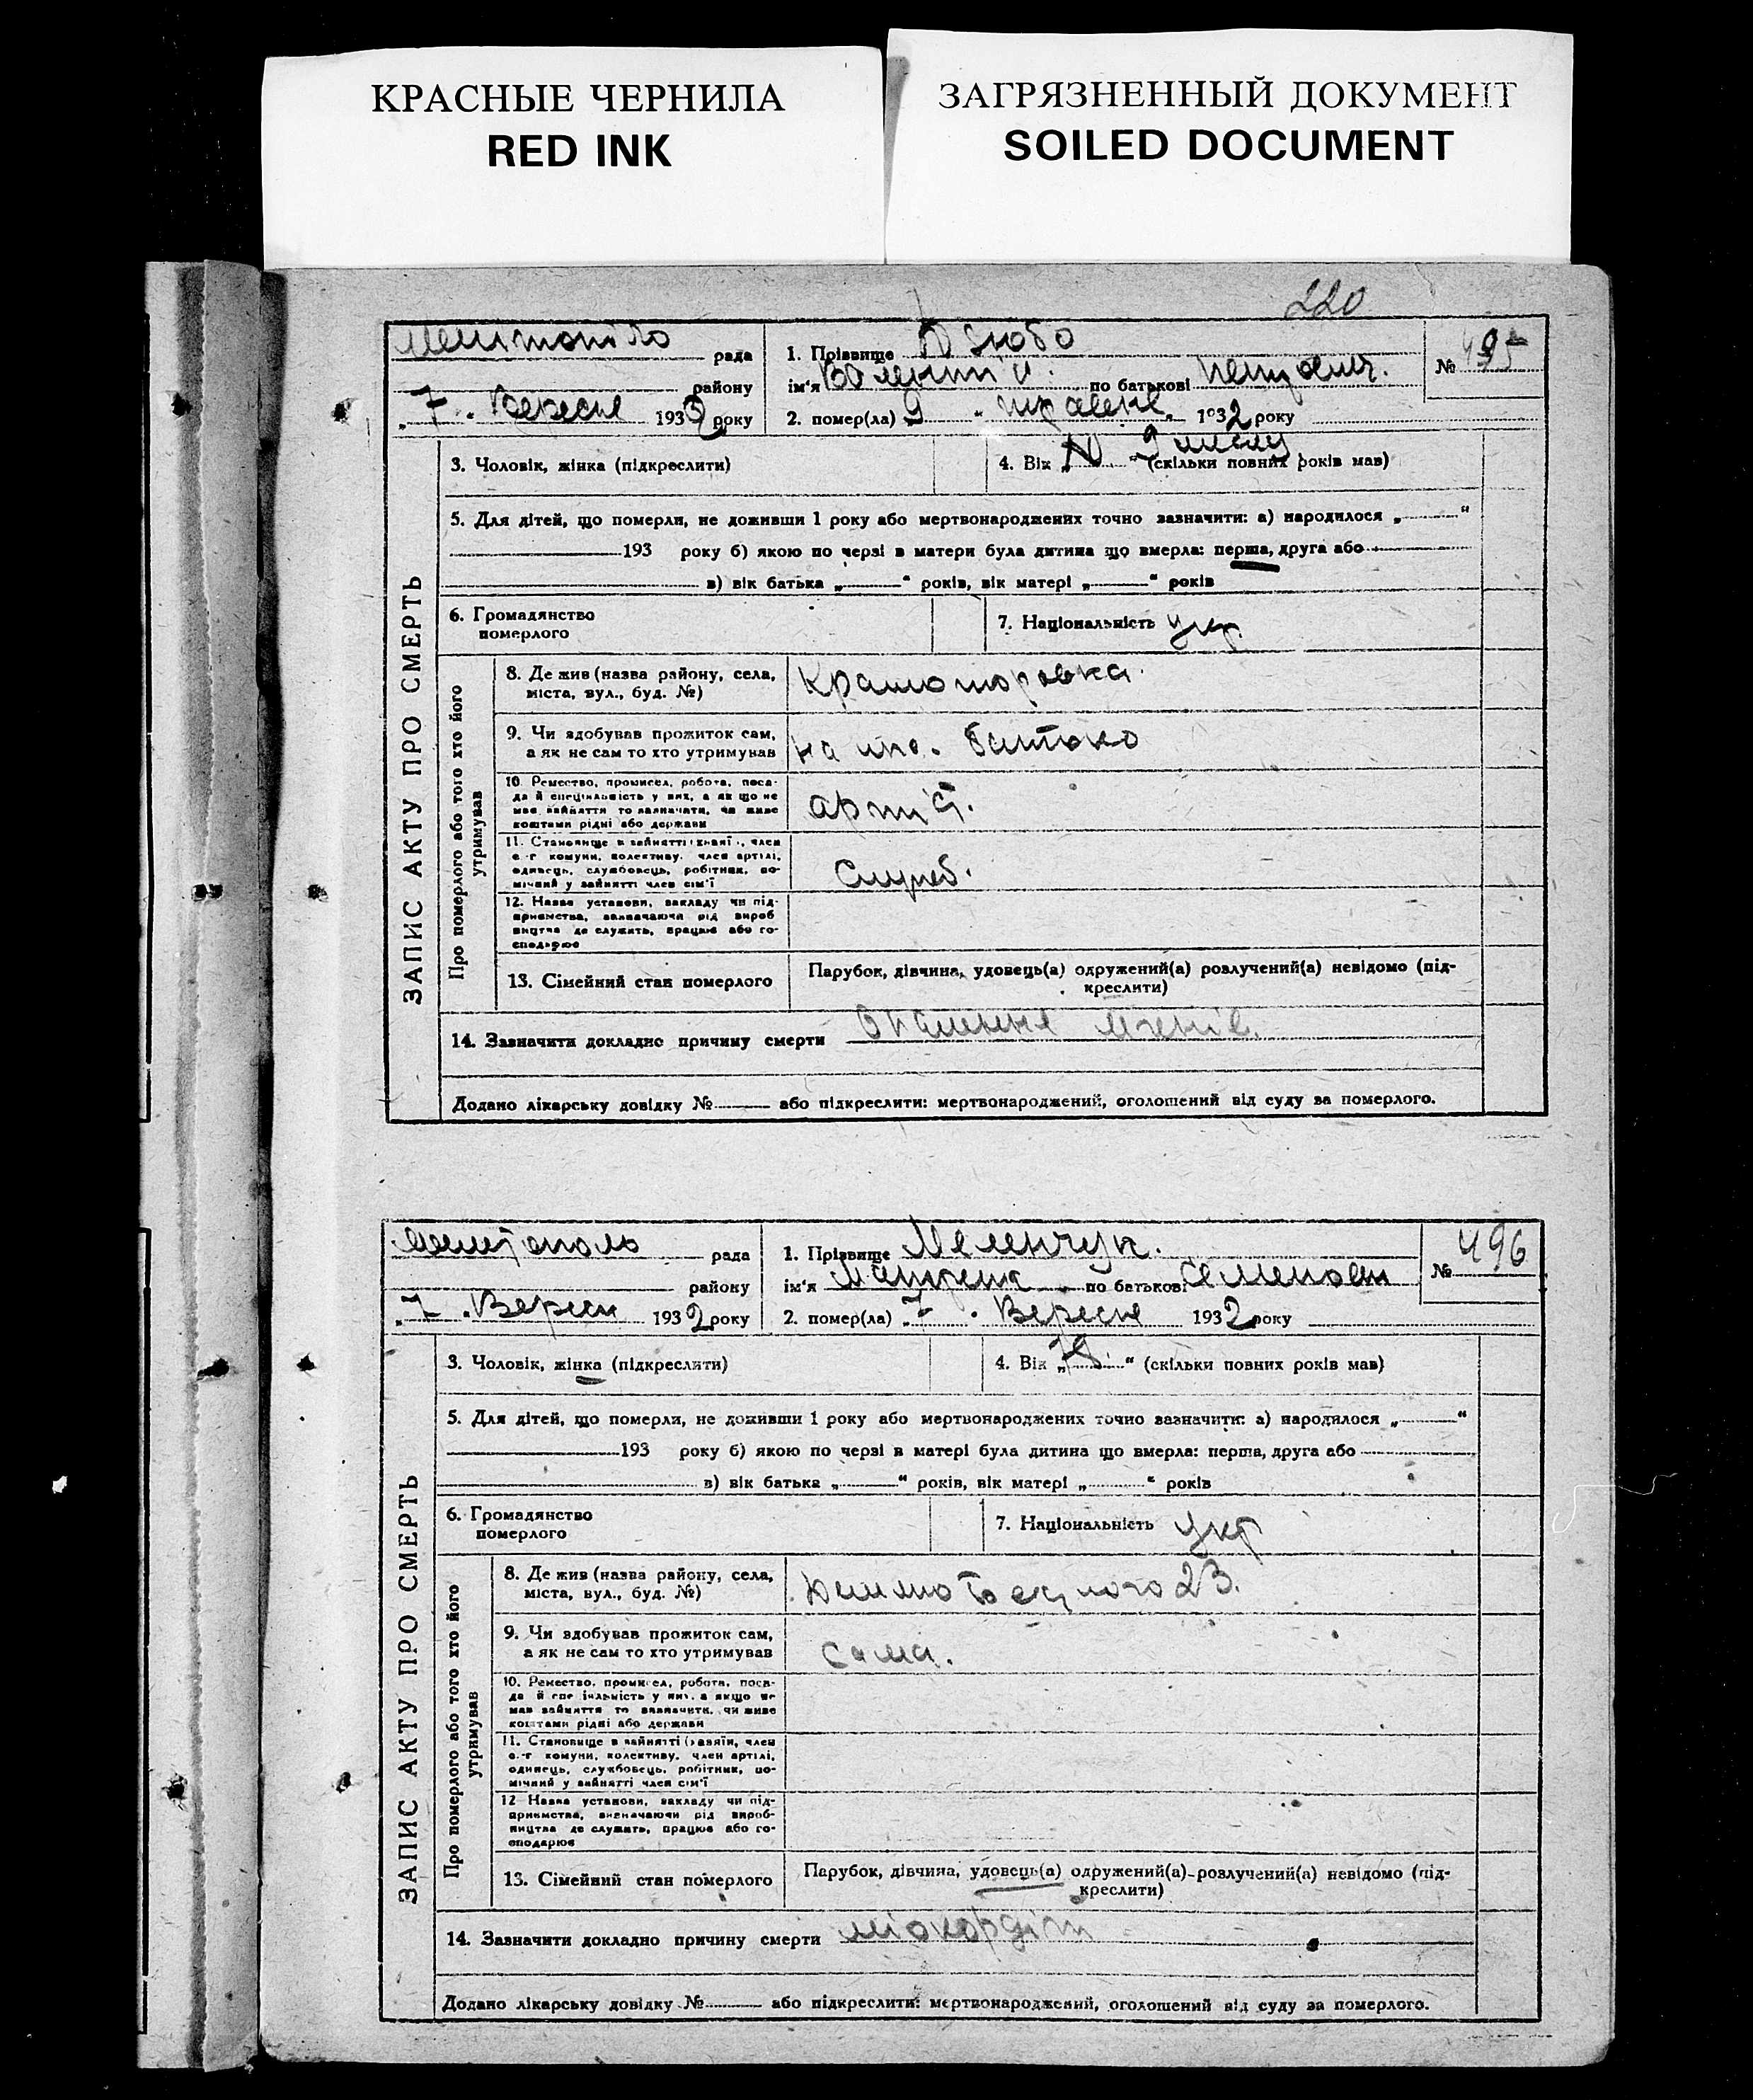 КРАСНЫЕ ЧЕРНИЛА
RED INK
ЗАГРЯЗНЕННЫЙ ДОКУМЕНТ
SOILED DOCUMENT
220
рада
району
„ 7 " Вересня 1932 року
1. Прізвище Дзюба
ім'я Валентин по батькові
2. помер(ла) 9 " травеня 1932 року
№ 495
ЗАПИС АКТУ ПРО СМЕРТЬ
3. Чоловік, жінка (підкреслити)
4. Вік „ " (скільки повних років мав)
5. Для дітей, що померли, не доживши 1 року або мертвонароджених точно зазначити: а) народилося „ "
193 року б) якою по черзі в матери була дитина що вмерла: перша, друга або
в) вік батька „ " років, вік матері „ " років
6. Громадянство
померлого
7. Національність укр.
Про померлого або того хто його
утримував
8. Де жив (назва району, села,
міста, вул., буд. №)
Краматоровка.
9. Чи здобував прожиток сам,
а як не сам то хто утримував
на батько
10. Ремество, промисел, робота, поса-
да й спеціальність у них, а як що не
мав зайняття то зазначити, чи живе
коштами рідні або держави
арт
11. Становище в зайнятті (хазяї , член
с.-г комуни, колективу, член артілі,
одинець, службовець, робітник, по-
мічний у зайнятті член сім'ї
Служб.
12. Назва установи, закладу чи під-
приємства, зазначаючи рід вироб
ництва де служить, працює або го-
сподарює
13. Сімейний стан померлого
Парубок, дівчина, удовець(а) одружений(а) розлучений(а) невідомо (під-
креслити)
14. Зазначити докладно причину смерти Опалення легенів.
Додано лікарську довідку № або підкреслити: мертвонароджений, оголошений від суду за померлого.
рада
району
„ 7 " Вересн 1932 року
1. Прізвище Меленчук.
ім'я по батькові Семенов
2. помер(ла) „ 7 " Вересня 1932 року
№ 496
ЗАПИС АКТУ ПРО СМЕРТЬ
3. Чоловік, жінка (підкреслити)
4. Вік „ " (скільки повних років мав)
5. Для дітей, що померли, не доживши 1 року або мертвонароджених точно зазначити: а) народилося „ "
193 року б) якою по черзі в матері була дитина що вмерла: перша, друга або
в) вік батька „ " років, вік матері „ " років
6. Громадянство
померлого
7. Національність укр
Про померлого або того хто його
утримував
8. Де жив (назва району, села,
міста, вул., буд. №)
23.
9. Чи здобував прожиток сам,
а як не сам то хто утримував
сама.
10. Ремество, промисел, робота, поса-
да й спеціальність у них, а якщо не
мав зайняття то зазначити, чи живе
коштами рідні або держави
11. Становище в зайнятті (хазяїн, член
с.-г комуни, колективу, член артілі,
одинець, службовець, робітник, по-
мічний у зайнятті член сім'ї
12 Назва установи, закладу чи під-
приємства, визначаючи рід вироб-
ництва де служить, працює або го-
сподарює
13. Сімейний стан померлого
Парубок, дівчина, удовець(а) одружений(а)-розлучений(а) невідомо (під-
креслити)
14. Зазначити докладно причину смерти міокардіт
Додано лікарську довідку № або підкреслити: мертвонароджений, оголошений від суду за померлого.